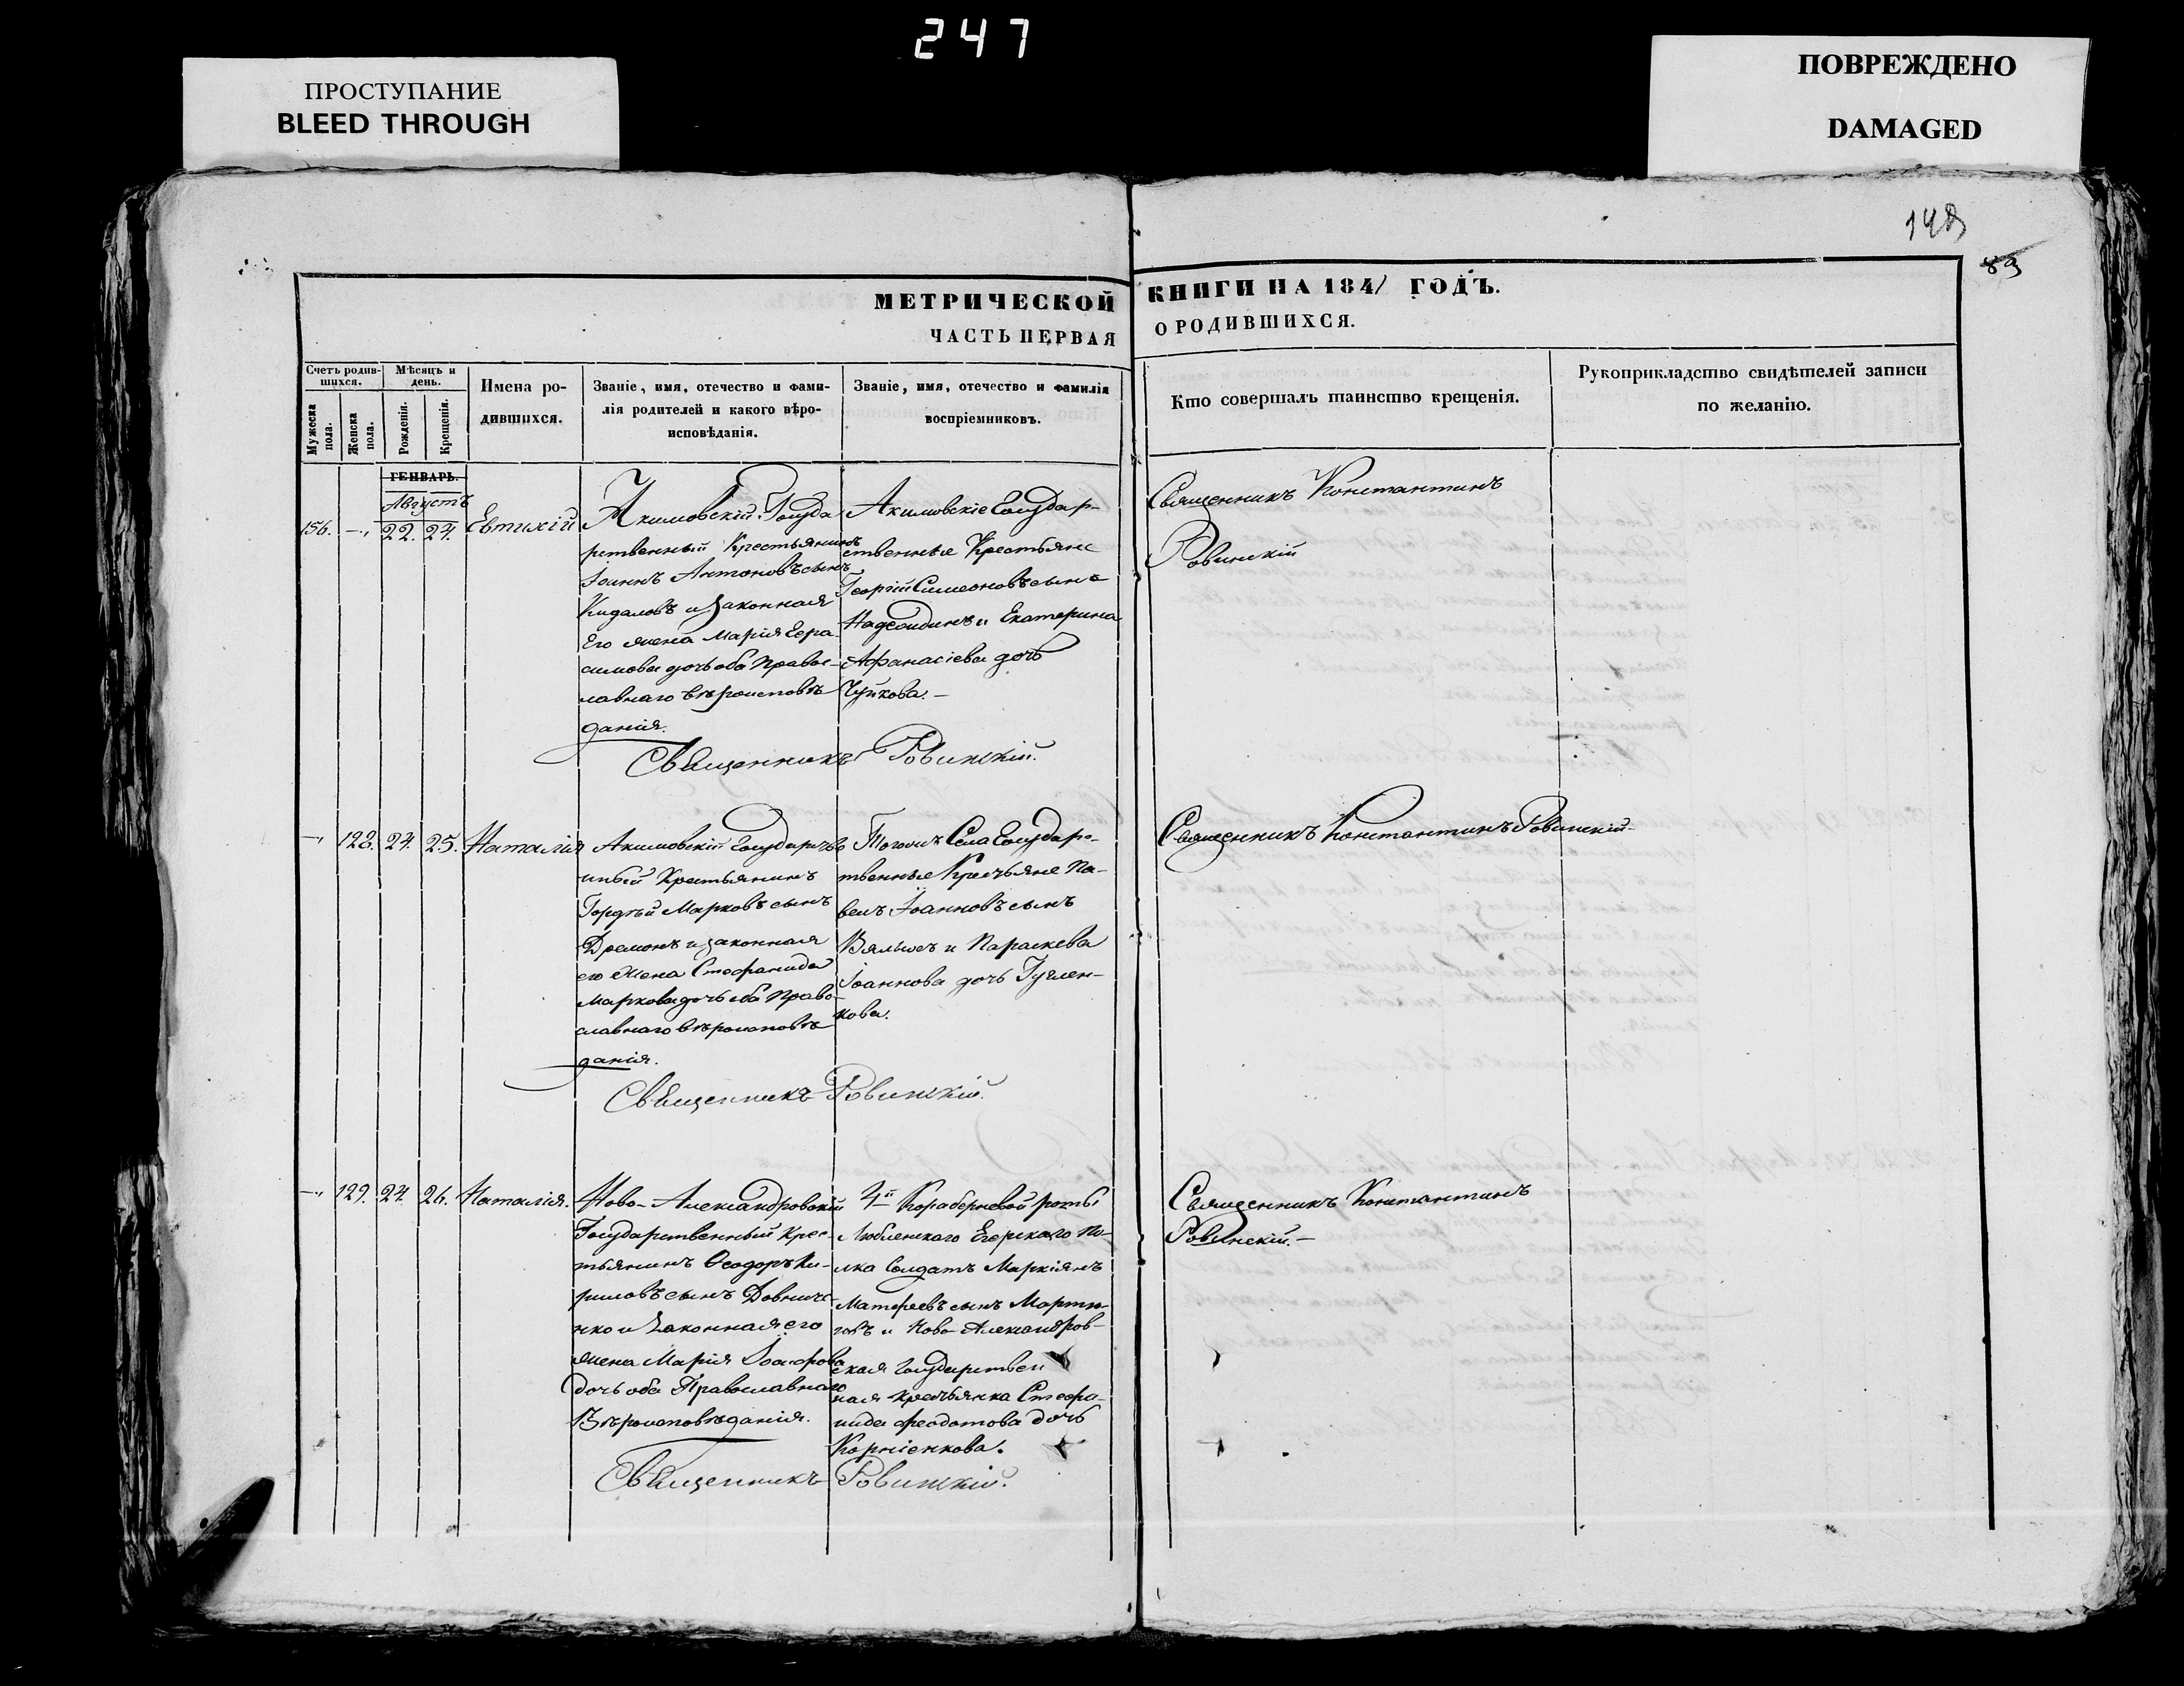 247
ПРОСТУПАНИЕ
BLEED THROUGH
ПОВРЕЖДЕНО
DAMAGED
149
89
МЕТРИЧЕСКОЙ КНИГИ НА 1841 ГОДЪ.
ЧАСТЬ ПЕРВАЯ О РОДИВШИХСЯ.
Счетъ родив-
шихся.
Мужеска
пола.
Женска
пола.
Мѣсяцъ и
день.
Рожденія.
Крещенія.
Имена ро-
дившихся.
Званіе, имя, отечество и фами-
лія родителей и какого вѣро-
исповѣданія.
Званіе, имя, отечество и фамилія
воспріемниковъ.
Кто совершалъ таинство крещенія.
Рукоприкладство свидѣтелей записи
по желанію.
ГЕНВАРЬ.
Августъ
156. — 22. 24. Евтихій
Акимовскій Госуда
рственный Крестьянинъ
Іоаннъ Антоновъ сынъ
Кидаловъ и законная
Его жена Марія Гера-
симова дочь оба Правос-
лавнаго вѣроисповѣ
данія.
Акимовскіе Государ-
ственные Крестьяне
Георгій Симеоновъ сынъ
и Екатерина
Афанасіева дочь
Чуйкова. —
Священникъ Ровинскій.
Священникъ Константинъ
Ровинскій
— 128. 24. 25. Наталія
Акимовскій Государстве
нный Крестьянинъ
Гордѣй Марковъ сынъ
и законная
его жена Стефанида
Маркова дочь оба Право-
славнаго вѣроисповѣ
данія.
Тогожъ Села Государс-
твенные Крестьяне Па-
велъ Іоанновъ сынъ
и Параскева
Іоаннова дочь Гуглен-
кова.
Священникъ Ровинскій.
Священникъ Константинъ Ровинскій
— 129. 24. 26. Наталія.
Ново-Александровскій
Государственный Крес-
тьянинъ Ѳеодоръ Ки-
риловъ сынъ
и Законная его
жена Марія
дочь оба Православнаго
Вѣроисповѣданія.
4й Карабернеой роты
Люблинскаго Егерскаго По-
лка Солдатъ Маркіянъ
Матфеевъ сынъ
и Ново-Александров-
ская Государствен
ная Крестьянка Стефа-
нида Феодотова дочь
Корніенкова.
Священникъ Ровинскій.
Священникъ Константинъ
Ровинскій. —